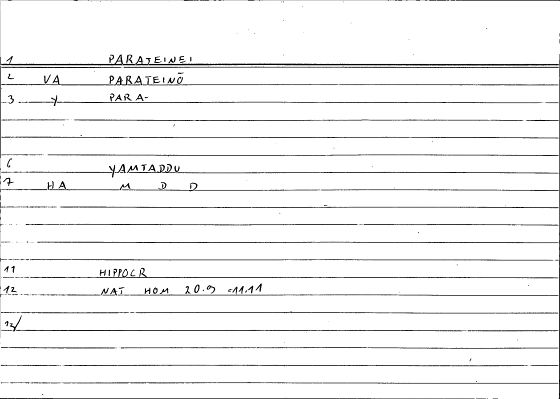 1 PARATEINEI
2 VA PARATEINŌ
3 Y PARA-
6 YAMTADDU
7 HA M D D
11 HIPPOCR
12 NAT HOM 20.9 =11.11